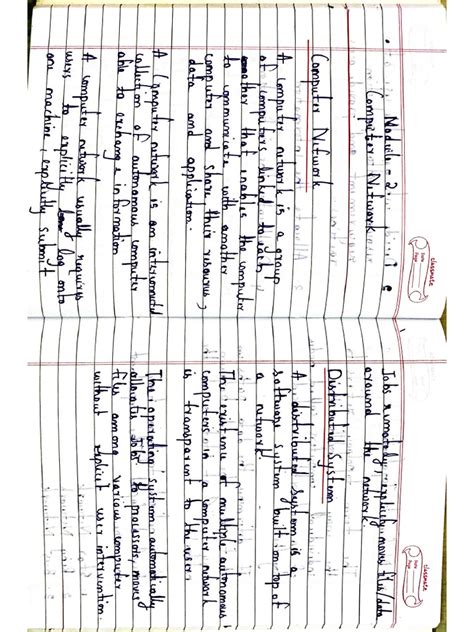 classmate
Date
Page
Module - 2
Computer Network
Computer Network
A computer network is a group
of computers linked to each
other that enables the computer
to communicate with another
computer and share their resources,
data and application.
A Computer network is an interconnected
collection of autonomous computer
able to exchange information
A computer network usually requires
users to explicitly log onto
one machine, explicitly submit
classmate
Date
Page
Jobs remotely, explicitly moves files/data
around the network.
Distributed System
A distributed system is a
software system built on top of
a network
The existence of multiple autonomous
computers in a computer network
is transparent to the user.
The operating system automatically
allocates Job to processors, moves
files among various computer
without explicit user intervention.